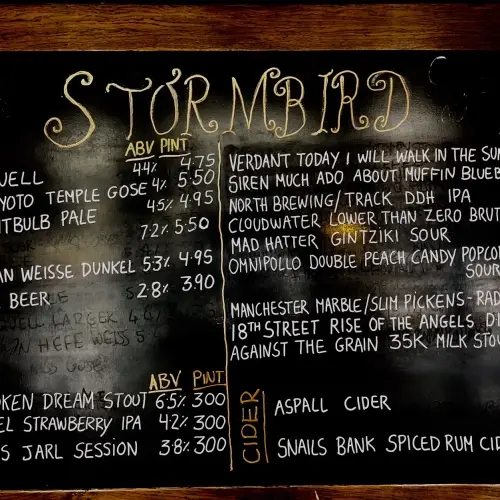 STORMBIRD
ABV PINT
WELL 4.4% 4.75
YOTO TEMPLE GOSE 4% 5.50
TBULB PALE 4.5% 4.95
7.2% 5.50
AN WEISSE DUNKEL 5.3% 4.95
BEER 2.8% 3.90
ABV PINT
OKEN DREAM STOUT 6.5% 300
EL STRAWBERRY IPA 4.2% 300
S JARL SESSION 3.8% 300
VERDANT TODAY I WILL WALK IN THE SUN
SIREN MUCH ADO ABOUT MUFFIN BLUEB
NORTH BREWING/TRACK DDH IPA
CLOUDWATER LOWER THAN ZERO BRUT
MAD HATTER GINTZIKI SOUR
OMNIPOLLO DOUBLE PEACH CANDY POPCO
SOUR
MANCHESTER MARBLE/SLIM PICKENS-RAD
18TH STREET RISE OF THE ANGELS DI
AGAINST THE GRAIN 35K MILK STOU
CIDER
ASPALL CIDER
SNAILS BANK SPICED RUM CID